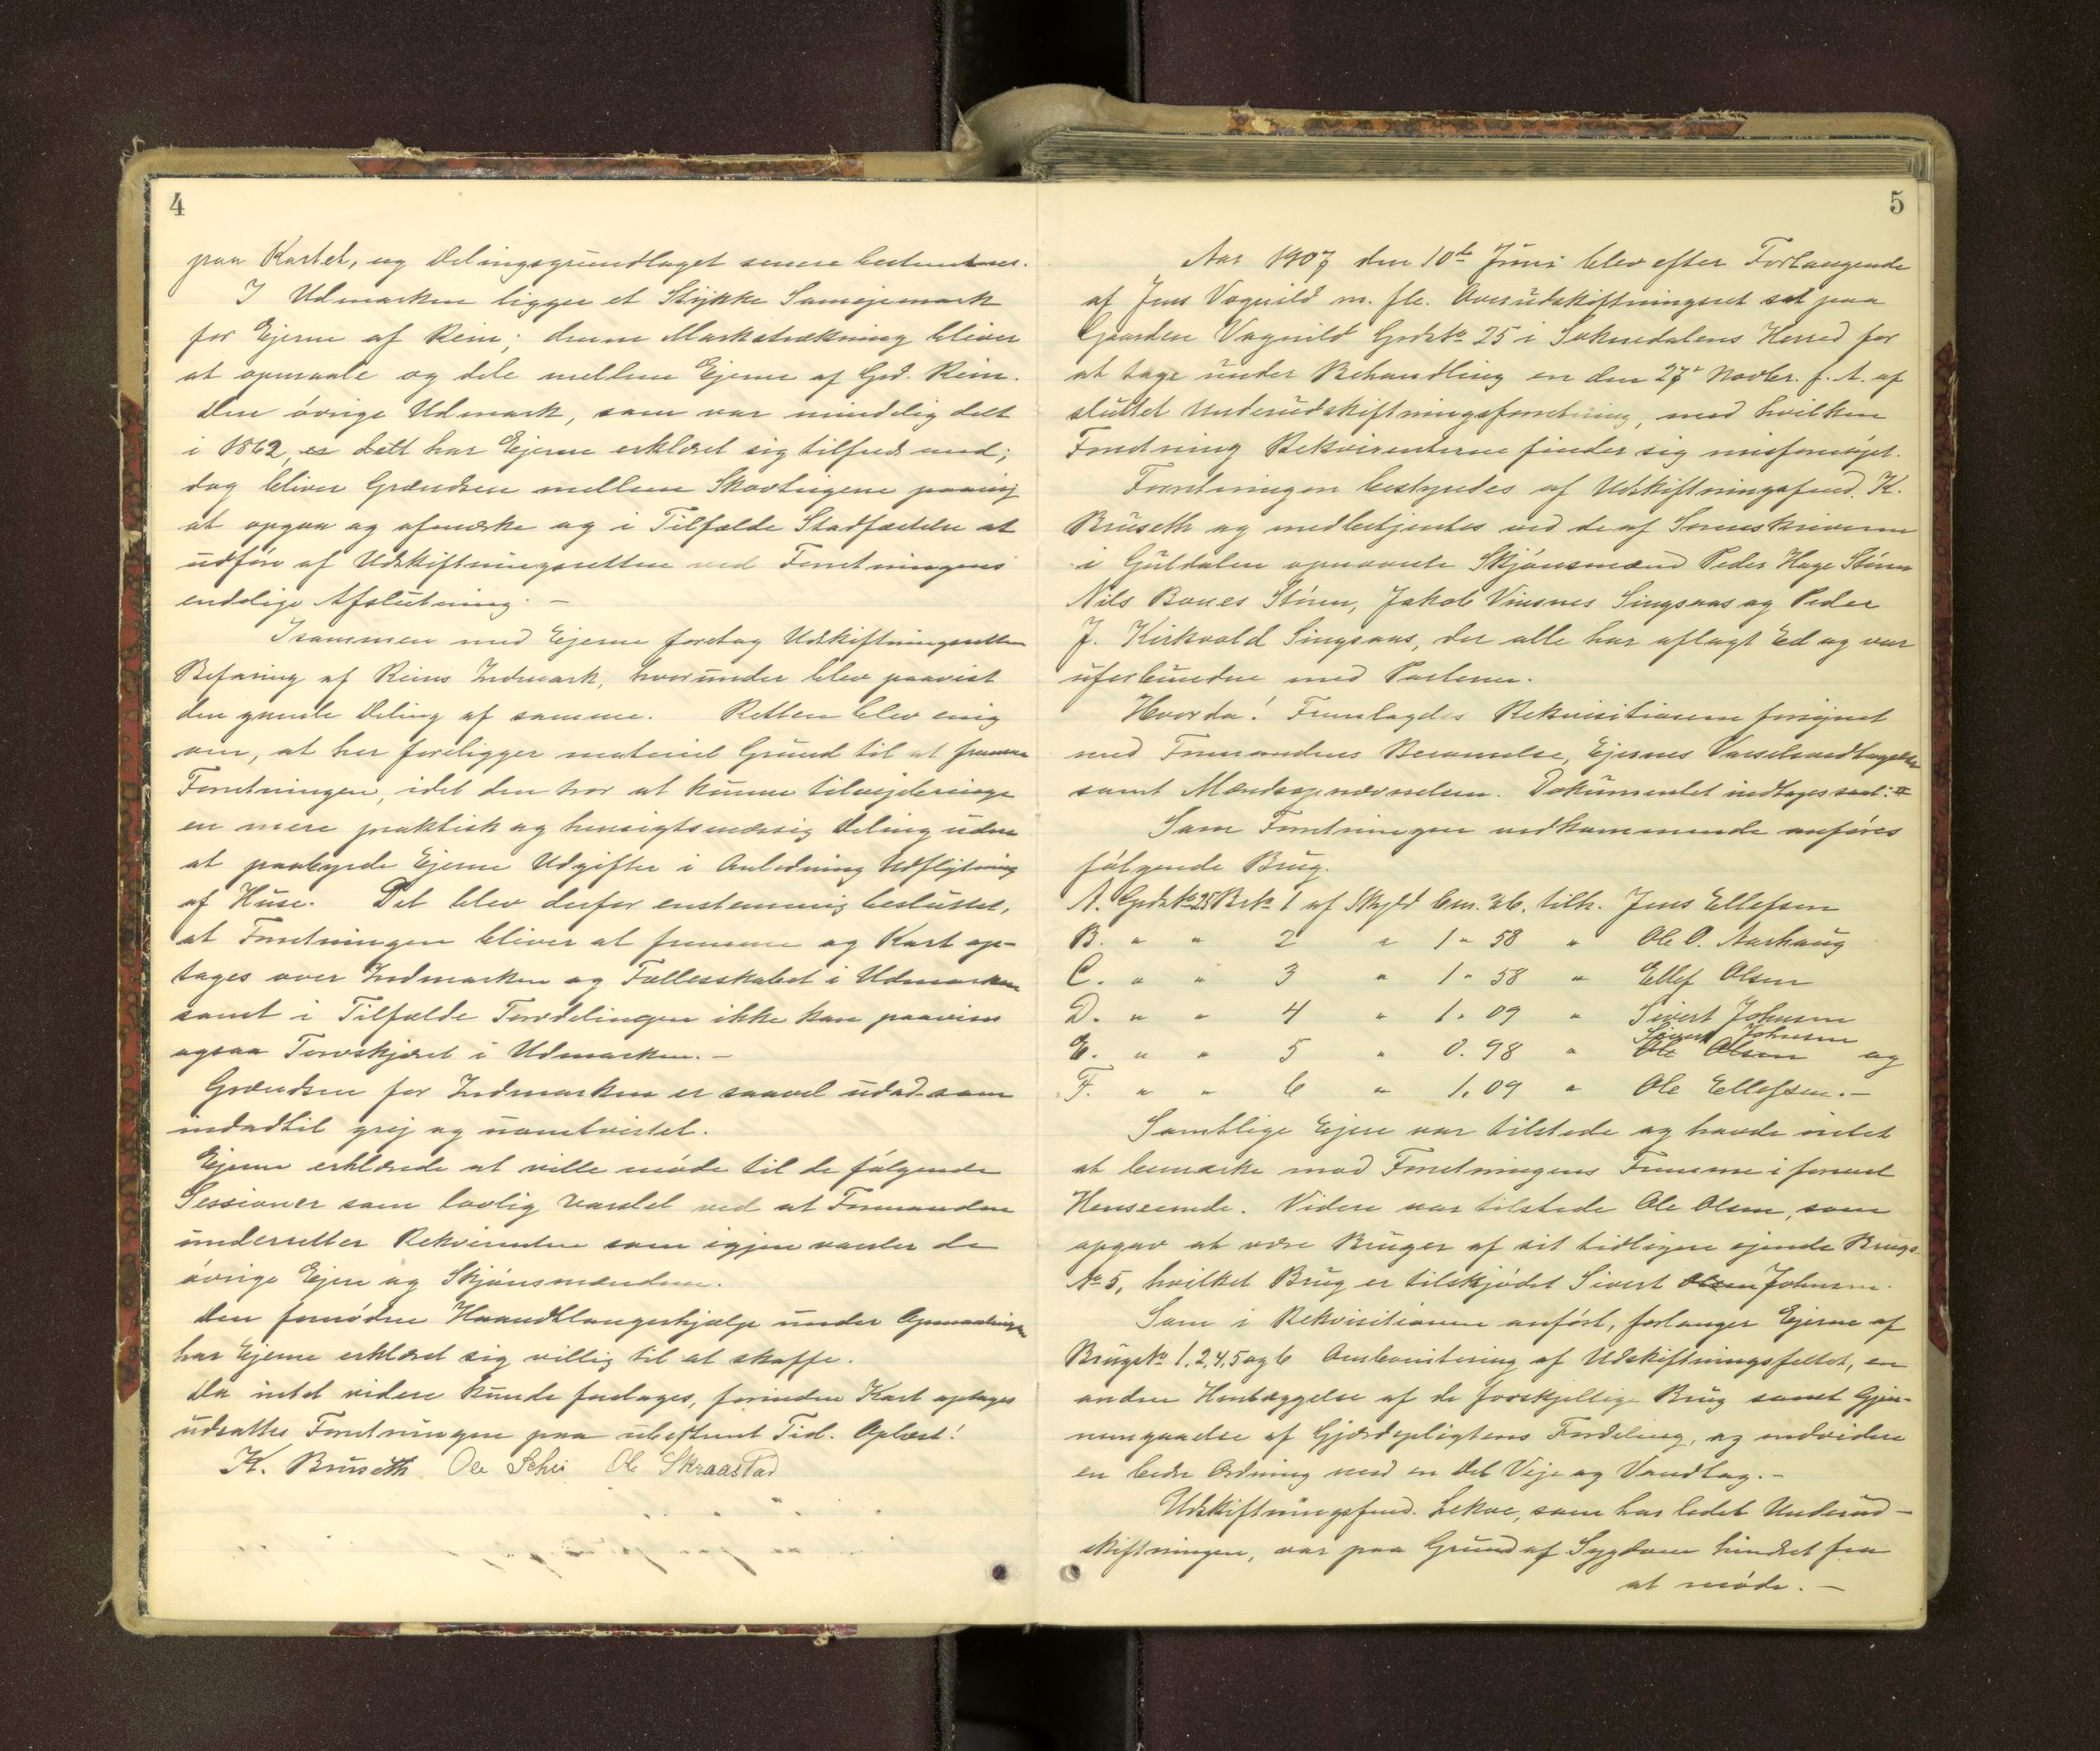 4
paa Kartet, og Delingsgrundlaget senere bestemmes.
I Udmarken ligger et Stykke Samejemark
for Ejerne af Rein; denne Markstrækning bliver
at opmaale og dele mellem Ejerne af Grd. Rein.
Den øvrige Udmark, som var mindelig delt
i 1862, er delt har Ejerne erklæret sig tilfreds med;
dog bliver Grændsen mellem Skovteigene
at opgaa og afmerke og i Tilfælde Stadfæstelse at
udføre af Udskiftningsretten ved Forretningens
endelige Afslutning. –
Isammen med Ejerne foretog Udskiftningsretten
Befaring af Reins Indmark, hvorunder blev paavist
den gamle Deling af samme. Retten blev enig
om, at her foreligger materiel Grund til at fremme
Forretningen, idet den tror at kunne tilvejebringe
en mere praktisk og hensigtsmæssig Deling uden
at paabyrde Ejerne Udgifter i Anledning Udflytning
af Huse. Det blev derfor enstemmig besluttet,
at Forretningen bliver at fremme og Kart op-
tages over Indmarken og Fællesskabet i Udmarken
samt i Tilfælde Torvdelingen ikke kan paavises
ogsaa Torvskjæret i Udmarken. –
Grændsen for Indmarken er saavel udad som
indadtil grej og uomtvistet.
Ejerne erklærede at ville møde til de følgende
Sessioner som lovlig varslet ved at Formanden
underretter Rekvirenten som igjen varsler de
øvrige Ejere og Skjønsmændene.
Den fornødne Haandtlangerhjælp under Opmaalingen
har Ejerne erklæret sig villig til at skaffe.
Da intet videre kunde foretages, forinden Kart optages
udsattes Forretningen paa ubestemt Tid. Oplæst!
K. Bruseth Ole Schei Ol Skraastad
5
Aar 1907 den 10de Juni blev efter Forlangende
af Jens Vagnild m. fle. Overudskiftningsret sat paa
Gaarden Vagnild Grdsno 25 i Soknedalens Herred for
at tage under Behandling en den 27de Novbr. f. A. af
sluttet Underudskiftningsforretning, med hvilken
Forretning Rekvirenterne finder sig misfornøjet.
Forretningen bestyredes af Udskiftningsfmd. K.
Bruseth og medbetjentes ved de af Sorenskriveren
i Guldalen opnævnte Skjønsmænd Peder Hage Støren
Nils Bones Støren, Jakob Vinsnes Singsaas og Peder
J. Kirkvold Singsaas, der alle har aflagt Ed og var
uforbundne med Parterne.
Hvorda! Fremlagdes Rekvisitionen forsynet
med Formandens Berammelse, Ejernes Varselsvedtagelse
samt Mændsopnævnelsen. Dokumentet indtages saal:
Som Forretningen vedkommende anføres
følgende Brug.
A. Grdsno 25 Brno 1 af Skyld 6 m. 36. tilh. Jens Ellefsen
B. " " 2 " 1 " 58 " Ole O. Aarhaug
C. " " 3 " 1 " 58 " Ellef Olsen
D. " " 4 " 1. 09 " Sivert Johnsen
Sivert Johnsen
E. " " 5 " 0. 98 " Ole Olsen og
F. " " 6 " 1. 09 " Ole Ellefsen. –
Samtlige Ejere var tilstede og havde intet
at bemærke mod Forretningens Fremme i formel
Henseende. Videre var tilstede Ole Olsen, som
opgav at være Bruger af sit tidligere ejende Brugs-
No 5, hvilket Brug er tilskjødet Sivert Olsen Johnsen.
Som i Rekvisitionen anført, forlanger Ejerne af
Brugsno 1, 2, 4, 5 og 6 Ombonitering af Udskiftningsfeltet, en
anden Henlæggelse af de forskjellige Brug samt Gjen-
nemgaaelse af Gjærdepligtens Fordeling, og endvidere
en bedre Ordning med en Del Veje og Vandtag. –
Udskiftningsfmd. Lekve, som har ledet Underud-
skiftningen, var paa Grund af Sygdom hindret fra
at møde. –